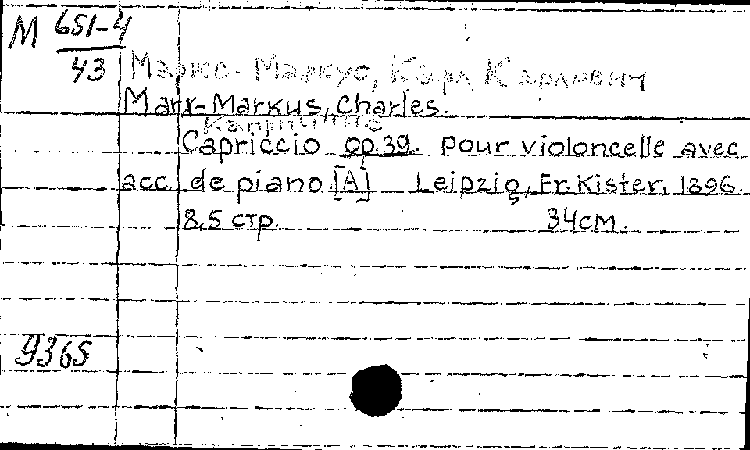 М 651-4
43
Маркс-Маркус, Карл Карлович
Marx-Markus, Charles.
Capriccio op.39. pour violoncelle avec
acc. de piano.[A] Leipzig, Fr. Kister, 1896.
8,5 стр. 34см.
9365